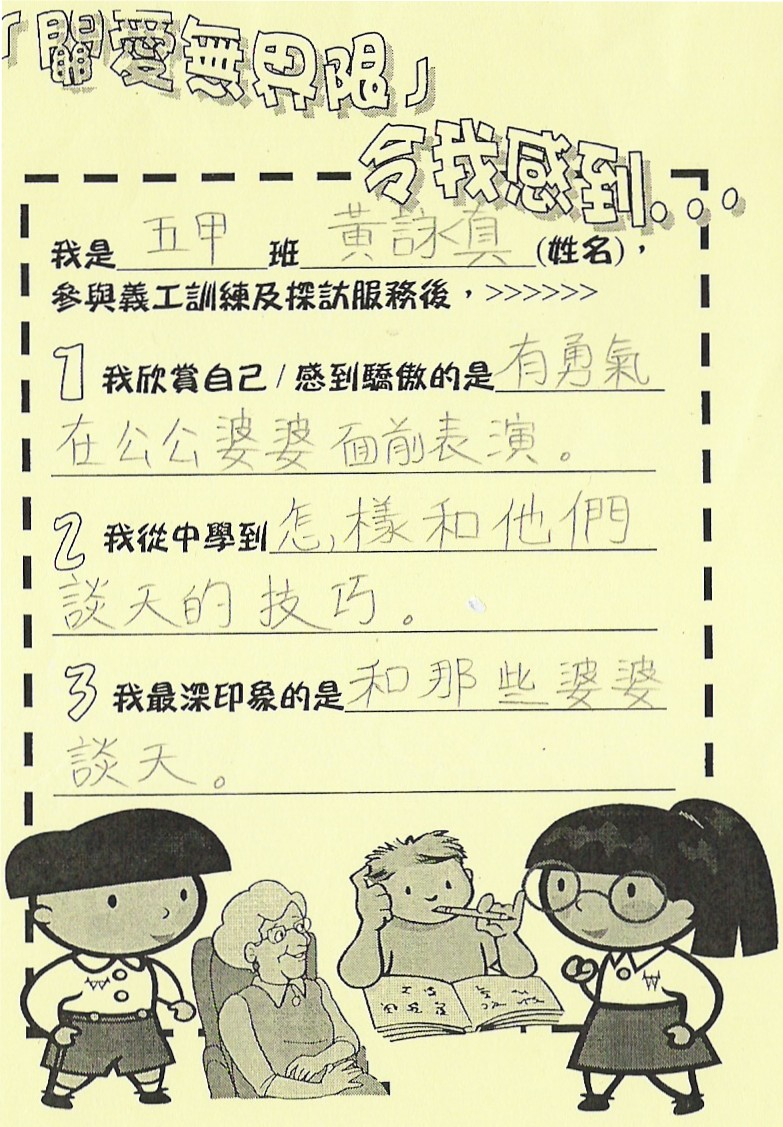 「關愛無界限」
令我感到...
我是 五甲 班 黃詠真 (姓名)，
參與義工訓練及探訪服務後，>>>>>>
1 我欣賞自己/感到驕傲的是有勇氣
在公公婆婆面前表演。
2 我從中學到怎樣和他們
談天的技巧。
3 我最深印象的是和那些婆婆
談天。